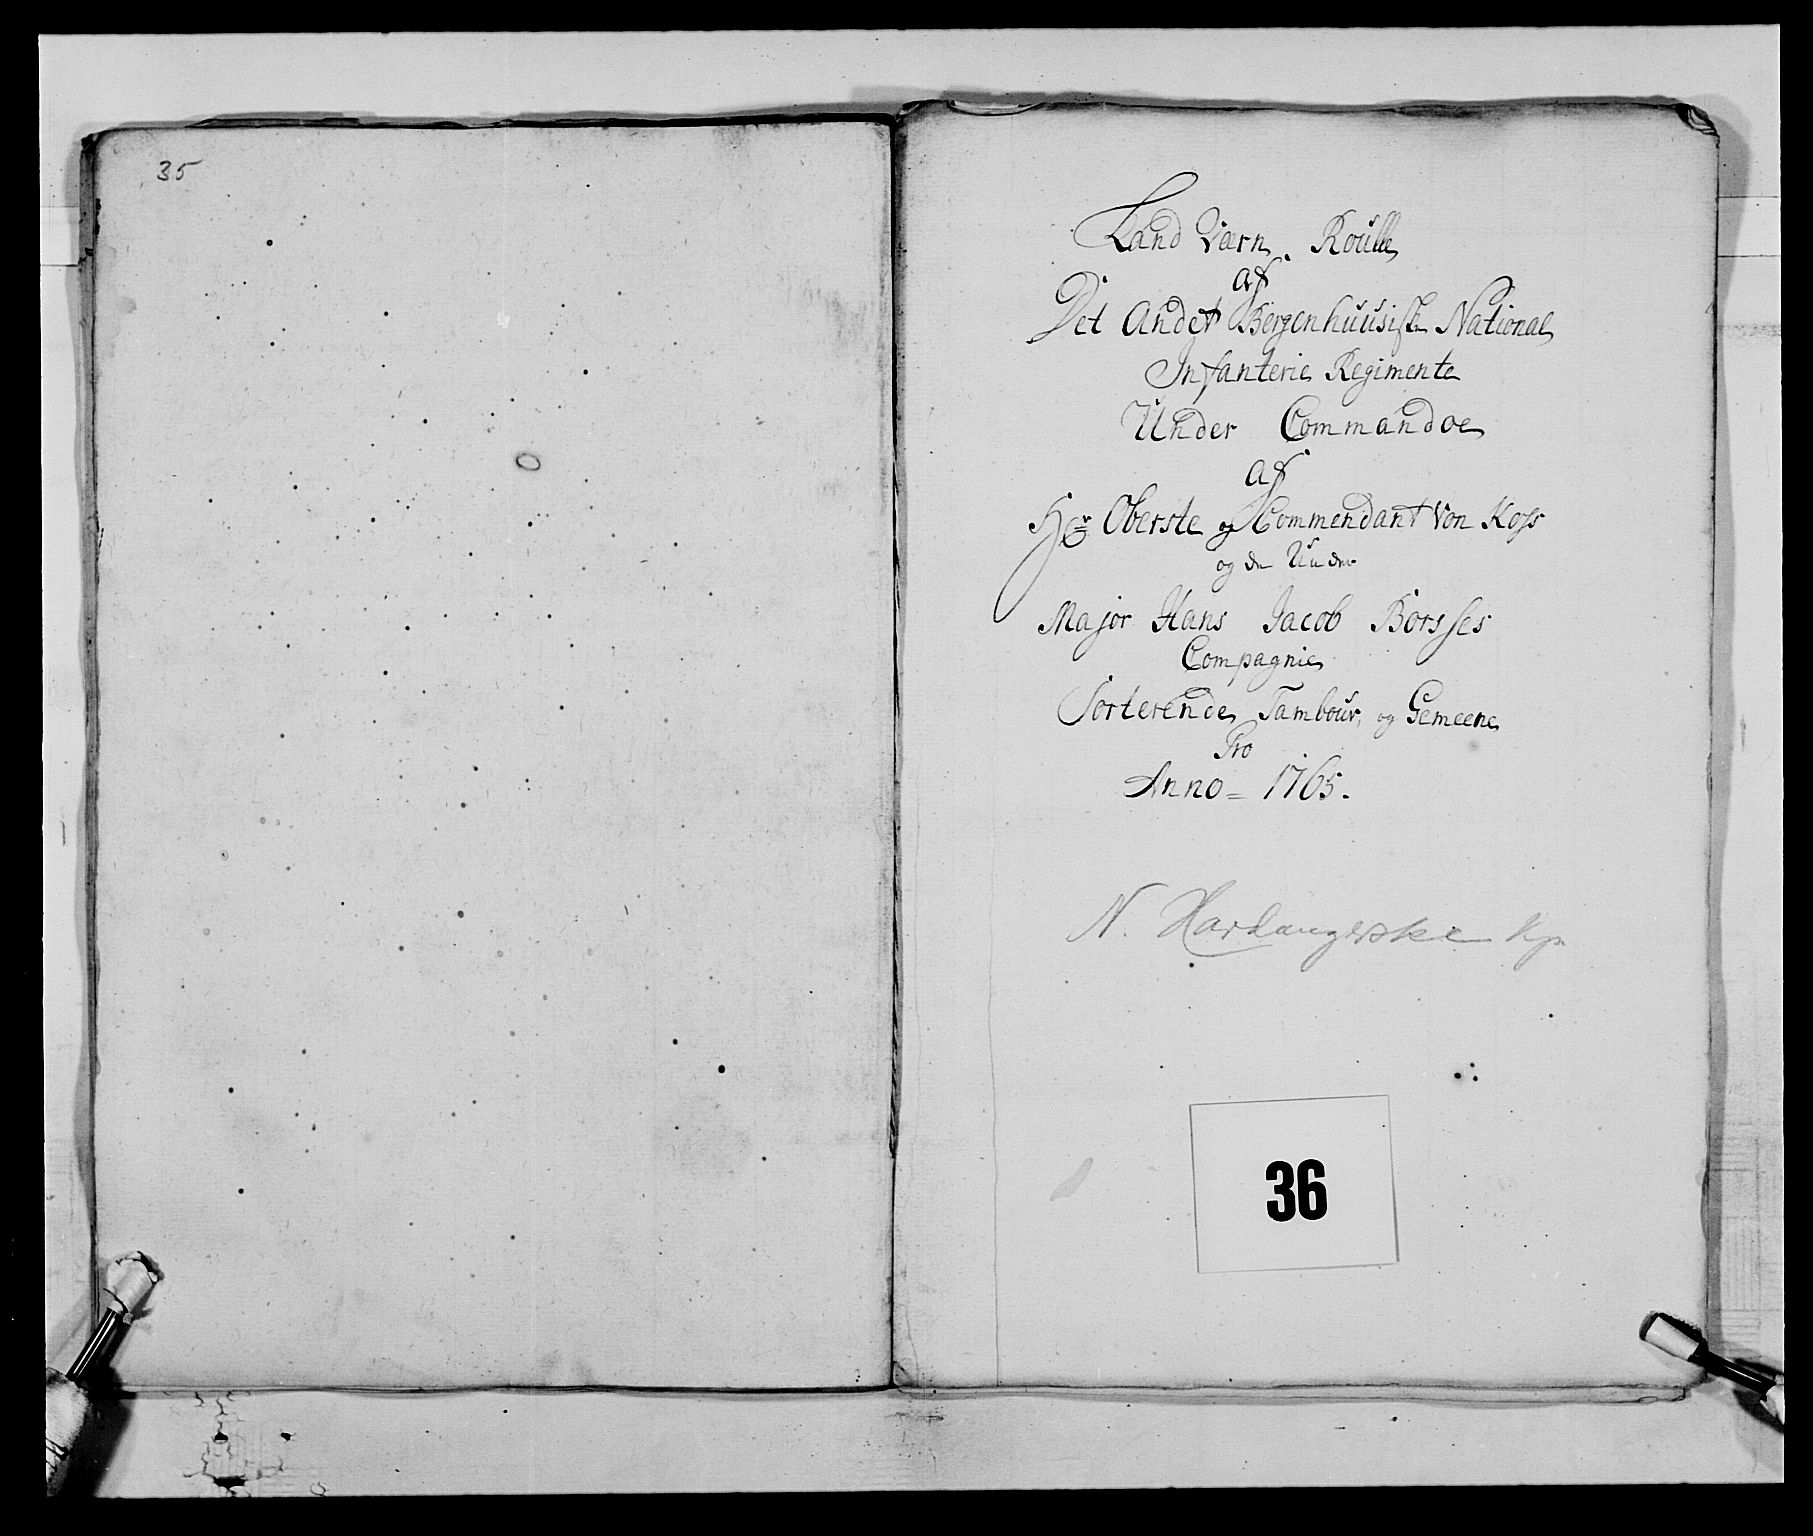 35
Land Værn Roulle
af
Det Andet Bergenhuusiske National
Infanterie Regimente
Under Commandoe
af
Hr Oberste og Commendant Von Koss
og den Under
Major Hans Jacob Borsses
Compagnie
Sorterende Tambour, og Gemeene
Pro
Anno = 1765.
N. Hardangerske Kp.
36